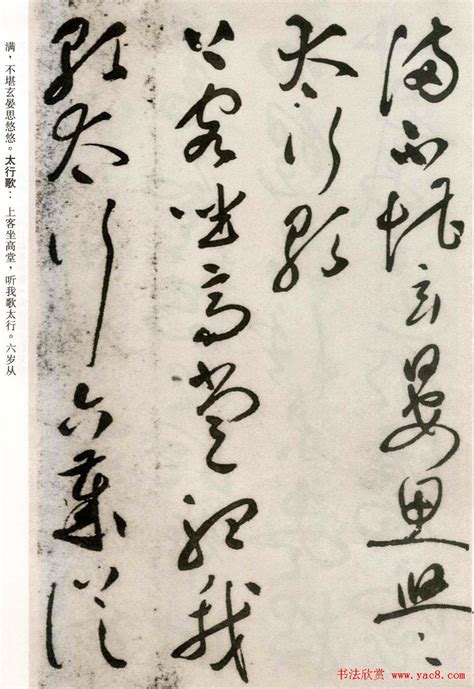 满不堪玄晏思悠〻
太行歌
上客坐高堂听我
歌太行六岁从
满，不堪玄晏思悠悠。太行歌：上客坐高堂，听我歌太行。六岁从
书法欣赏 www.yac8.com